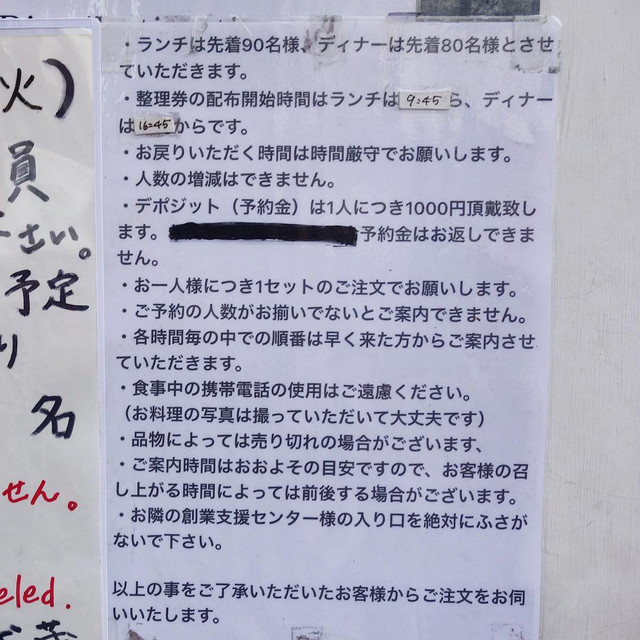 ・ランチは先着90名様、ディナーは先着80名様とさせ
ていただきます。
・整理券の配布開始時間はランチは 9:45 ら、ディナー
は 16:45 からです。
・お戻りいただく時間は時間厳守でお願いします。
・人数の増減はできません。
・デポジット（予約金）は1人につき1000円頂戴致し
ます。 予約金はお返しできま
せん。
・お一人様につき1セットのご注文でお願いします。
・ご予約の人数がお揃いでないとご案内できません。
・各時間毎の中での順番は早く来た方からご案内させ
ていただきます。
・食事中の携帯電話の使用はご遠慮ください。
（お料理の写真は撮っていただいて大丈夫です）
・品物によっては売り切れの場合がございます、
・ご案内時間はおおよその目安ですので、お客様の召
し上がる時間によっては前後する場合がございます。
・お隣の創業支援センター様の入り口を絶対にふさが
ないで下さい。
以上の事をご了承いただいたお客様からご注文をお伺
いいたします。
火)
員
さい。
予定
り
名
せん。
eled.